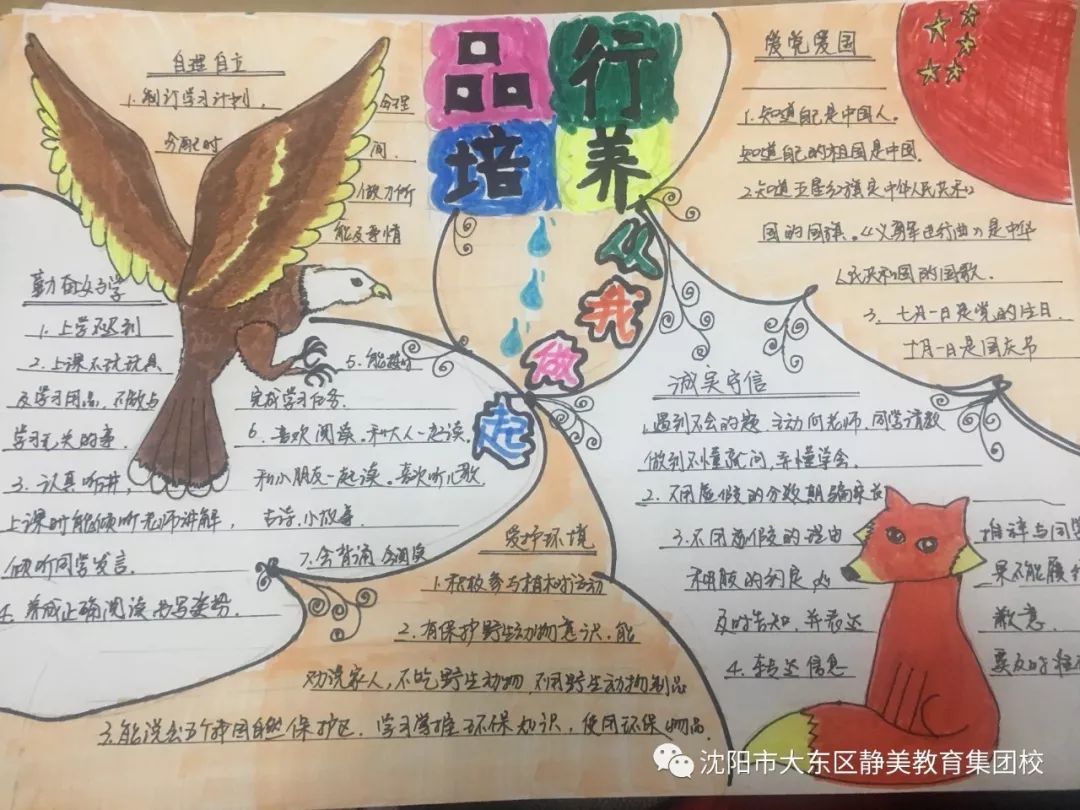 品行
培养
从我
做
起
自理自立
1.制订学习计划, 合理
分配时 间.
做力所
能及事情
爱党爱国
1.知道自己是中国人。
知道自己的祖国是中国.
2.知道五星红旗是中华人民共和
国的国旗。《义勇军进行曲》是中华
人民共和国的国歌.
3、七月一日是党的生日.
十月一日是国庆节
勤奋好学
1.上学不迟到
2.上课不玩玩具
及学习用品,不做与
学习无关的事.
3.认真听讲,
上课时能倾听老师讲解,
倾听同学发言.
4.养成正确阅读书写姿势.
5.能按时
完成学习任务.
6.喜欢阅读。和大人一起读.
和小朋友一起读。喜欢听儿歌.
古诗.小故事.
7.会背诵
诚实守信
1.遇到不会的题 主动向老师.同学请教
做到不懂就问,弄懂学会.
2.不用虚假的分数
3.不用虚假的理由 推辞与同学
相 的约定 果不能履
及时告知,并表达 歉意.
4.转达信息 要及时
爱护环境
1.积极参与植树活动
2.有保护野生动物意识.能
劝说家人,不吃野生动物,不用野生动物制品
3.能说出五个中国自然保护区.学习掌握环保知识,使用环保物品.
沈阳市大东区静美教育集团校